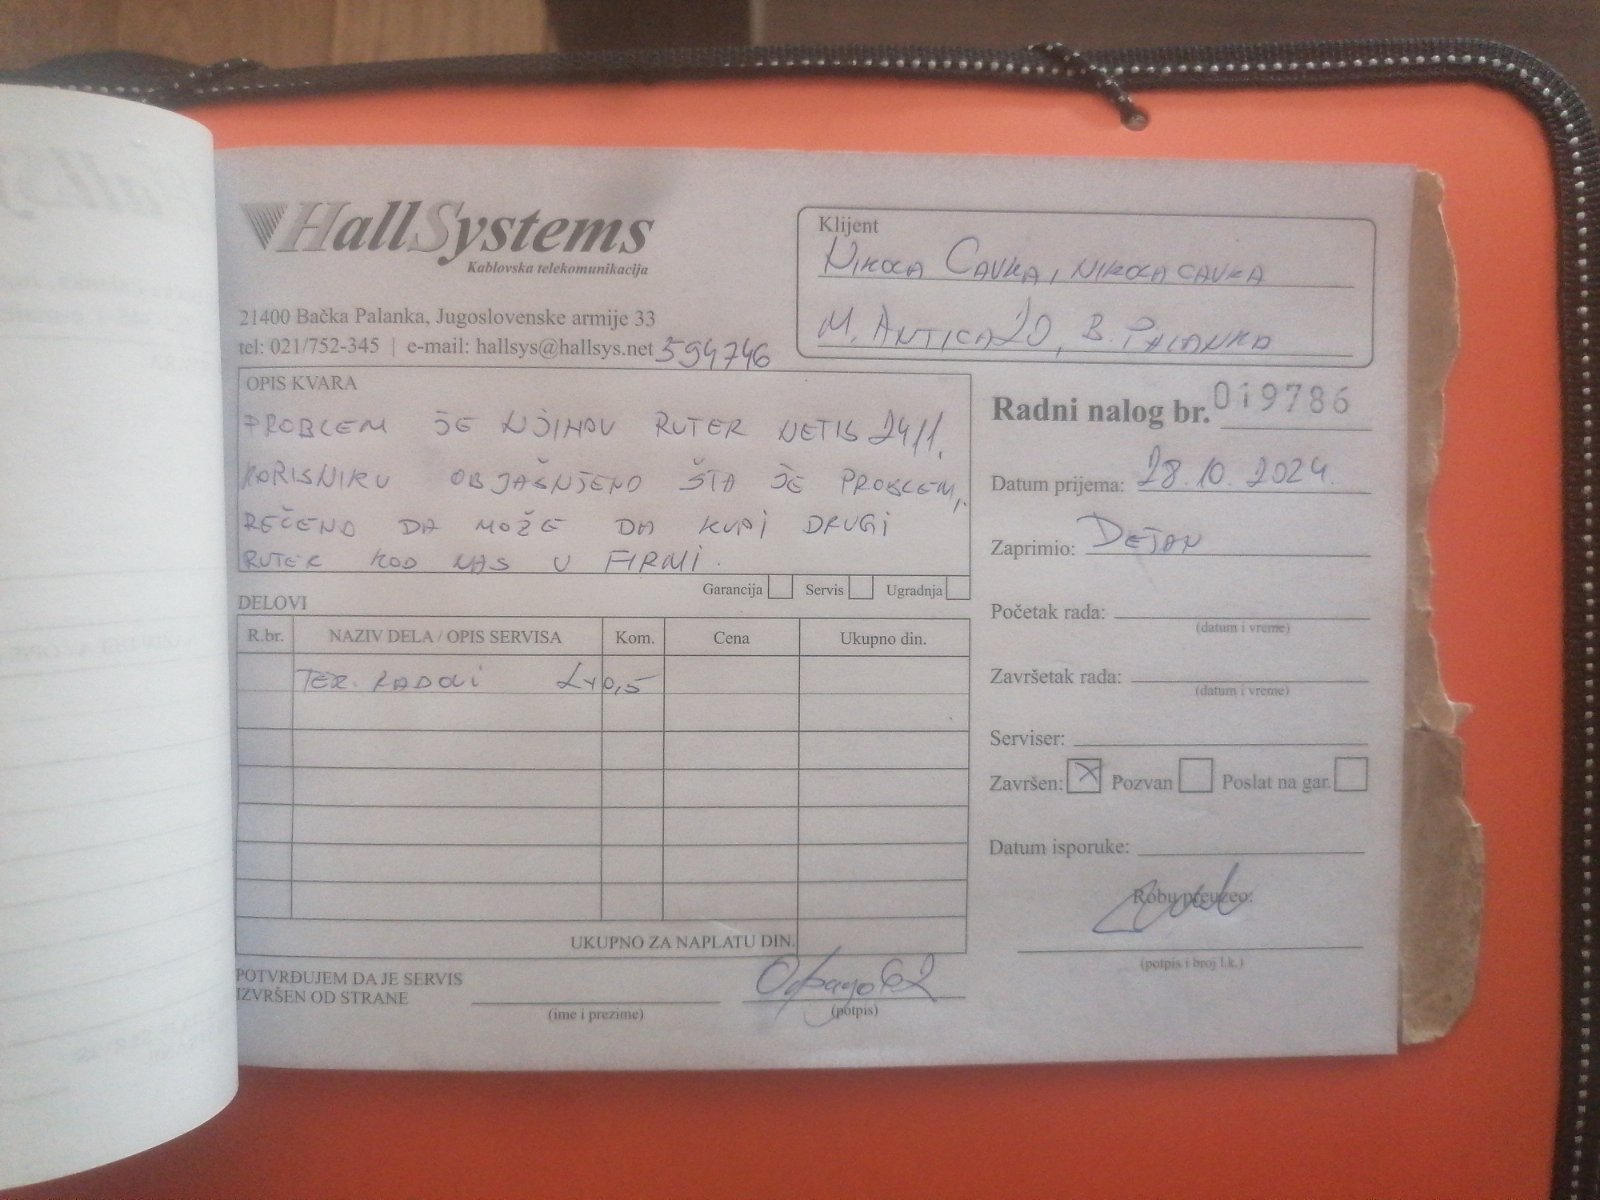 HallSystems
Kablovska telekomunikacija
21400 Bačka Palanka, Jugoslovenske armije 33
tel: 021/752-345 | e-mail: hallsys@hallsys.net 594746
Klijent
NIKOLA CAVKA, NIKOLACAVKA
M. ANTICA 20, B. PALANKA
OPIS KVARA
PROBLEM JE NJIHOV RUTER NETIS 2411.
KORISNIKU OBJAŠNJENO ŠTA JE PROBLEM,
REČENO DA MOŽE DA KUPI DRUGI
RUTER KOD NAS U FIRMI.
Garancija Servis Ugradnja
DELOVI
R.br. NAZIV DELA / OPIS SERVISA Kom. Cena Ukupno din.
TER. RADOVI 2x0,5
UKUPNO ZA NAPLATU DIN.
POTVRĐUJEM DA JE SERVIS
IZVRŠEN OD STRANE
(ime i prezime) (potpis)
Radni nalog br. 019786
Datum prijema: 28.10.2024.
Zaprimio: DEJAN
Početak rada:
(datum i vreme)
Završetak rada:
(datum i vreme)
Serviser:
Završen: X Pozvan Poslat na gar.
Datum isporuke:
Robu preuzeo:
(potpis i broj l.k.)